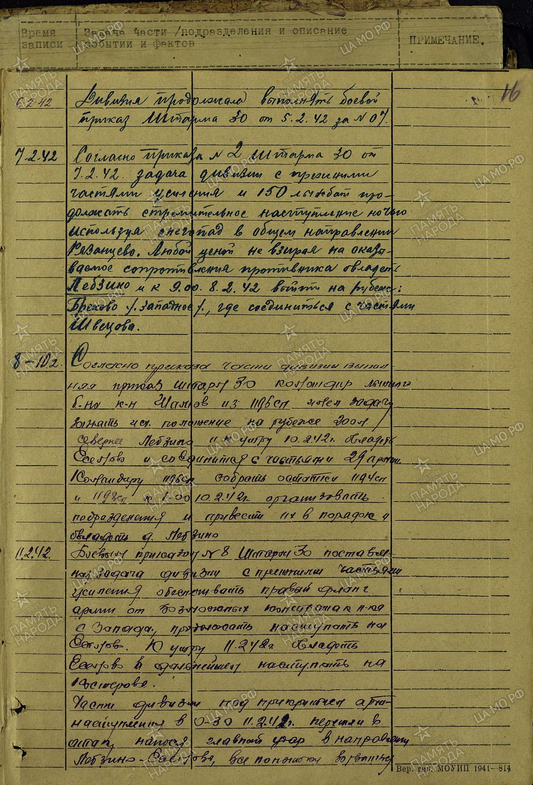 Время записи
Задача части /подразделения и описание событий и фактов
ПРИМЕЧАНИЕ.
16
6.2.42
Дивизия продолжала выполнять боевой
приказ Штарма 30 от 5.2.42 за № 07
7.2.42
Согласно приказа № 2 Штарма 30 от
7.2.42 задача дивизии с прежними
частями усиления и 150 лыжбат про-
должать стремительное наступление ночью
используя снегопад в общем направлении
Рязанцево. Любой ценой не взирая на оказы-
ваемое сопротивления противника овладеть
Лебзино и к 9.00 8.2.42 выйти на рубеж:
Брехово /западное/, где соединиться с частями
Швецова.
8-10.2.
Согласно приказа части дивизии выпол-
няя приказ Штарм 30 командир лыжного
б-на к-н имел задачу
положение на рубеже
севернее Лебзино и к утру 10.2.42г.
и соединится с частями 29 армии.
Командиру собрать остатки
и к 1-00 10.2.42г. организовать
подразделения и привести их в порядок и
овладеть д. Лебзино
11.2.42.
Боевым приказом № 8 Штарма 30 поставле-
на задача дивизии с прежними частями
усиления обеспечивать правый фланг
армии от возможных контратак п-ка
с Запада, продолжать наступать на
К утру 11.2.42г овладеть
в дальнейшем наступать на
Части дивизии под прикрытием арт-
наступления в 0-30 11.2.42г. перешли в
атаку, нанося главный удар в направлении
Лебзино - все попытки ворваться
Вер. тип. МОУИП 1941— 814
ПАМЯТЬ НАРОДА
ЦА МО.РФ